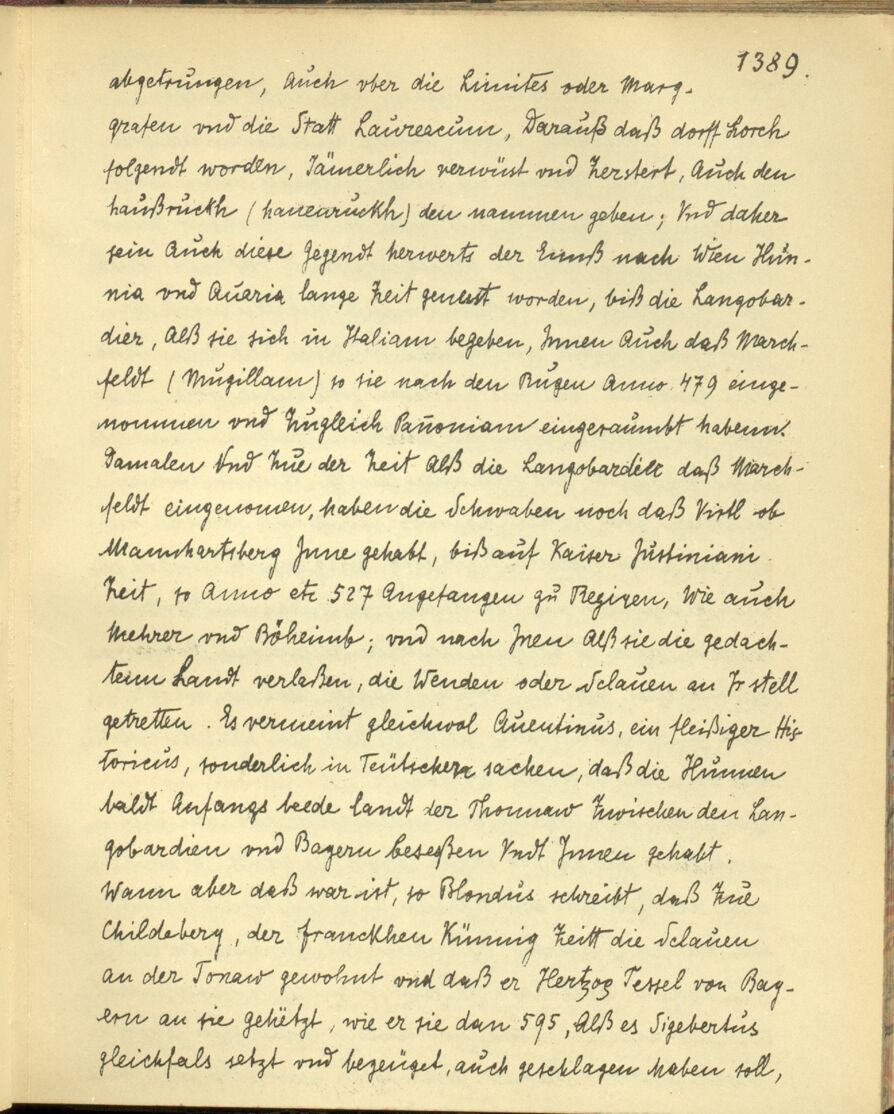 1389.
abgetrungen, Auch vber die Limites oder Marg-
grafen vnd die Statt Laureacum, Darauß daß dorff Lorch
folgendt worden, Jämerlich verwüst vnd Zerstert, Auch den
haußruckh (hanenruckh) den nammen geben; Vnd daher
sein Auch diese Gegendt herwerts der Ennß nach Wien Hün-
nia vnd Auaria lange Zeit genent worden, biß die Langobar-
dier, Alß sie sich in Italiam begeben, Jnnen Auch daß March-
feldt (Mugillam) so sie nach den Rugen Anno 479 einge-
nommen vnd Zugleich Pañoniam eingeraumbt habenn.
Damalen Vnd Zue der Zeit Alß die Langobardier daß March-
feldt eingenomen, haben die Schwaben noch daß Virtl ob
Mannhartsberg Jnne gehabt, biß auf Kaiser Justiniani
Zeit, so Anno etc 527 Angefangen zu Regiren, Wie auch
Mehrer vnd Böheimb; vnd nach Jnen Alß sie die gedach-
tenn Landt verlaßen, die Wenden oder Sclauen an Jr stell
getretten. Es vermeint gleichwol Auentinus, ein fleißiger His-
toricus, sonderlich in Teütschen sachen, daß die Hunnen
baldt Anfangs beede landt der Thonnaw Zwischen den Lan-
gobardien vnd Bayern beseßen Vndt Jnnen gehabt.
Wann aber daß war ist, so Blondus schreibt, daß Zue
Childeberg, der franckhen Künnig Zeitt die Sclauen
an der Tonaw gewohnt vnd daß er Hertzog Tessel von Bay-
ern an sie gehetzt, wie er sie dan 595, Alß es Sigebertus
gleichfals setzt vnd bezeüget, auch geschlagen haben soll,